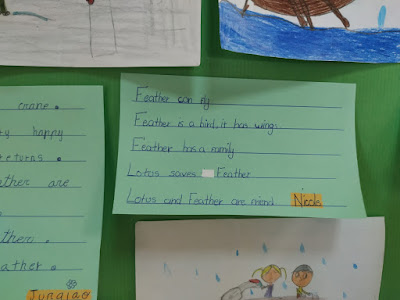 crane.
happy
returns.
ather are
ther.
ather.
Junajae
Feather can fly
Feather is a bird, it has wings.
Feather has a family
Lotus saves Feather
Lotus and Feather are
Nicole